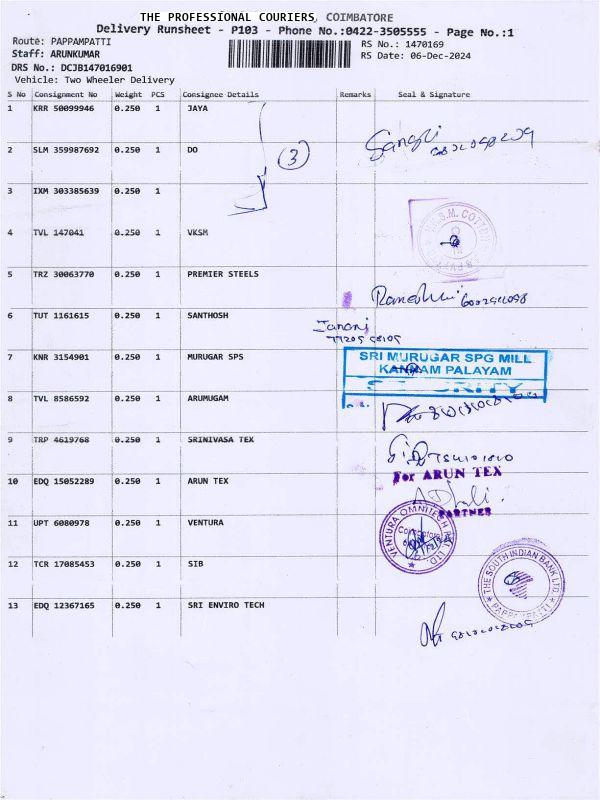 THE PROFESSIONAL COURIERS, COIMBATORE
Delivery Runsheet - P103 - Phone No.:0422-3505555 - Page No.:1
Route: PAPPAMPATTI
RS No.: 1470169
Staff: ARUNKUMAR
RS Date: 06-Dec-2024
DRS No.: DCJB147016901
Vehicle: Two Wheeler Delivery
S No Consignment No Weight PCS Consignee Details Remarks Seal & Signature
1 KRR 50099946 0.250 1 JAYA
2 SLM 359987692 0.250 1 DO
3
3 IXM 303385639 0.250 1
4 TVL 147041 0.250 1 VKSM
5 TRZ 30063770 0.250 1 PREMIER STEELS
6 TUT 1161615 0.250 1 SANTHOSH
Janani
7 KNR 3154901 0.250 1 MURUGAR SPS
SRI MURUGAR SPG MILL
KANNAM PALAYAM
SECURITY
8 TVL 8586592 0.250 1 ARUMUGAM
9 TRP 4619768 0.250 1 SRINIVASA TEX
10 EDQ 15052289 0.250 1 ARUN TEX
For ARUN TEX
PARTNER
11 UPT 6080978 0.250 1 VENTURA
VENTURA OMNITECH P LTD.
Coimbatore
12 TCR 17085453 0.250 1 SIB
THE SOUTH INDIAN BANK LTD.
PAPPAMPATTI
13 EDQ 12367165 0.250 1 SRI ENVIRO TECH